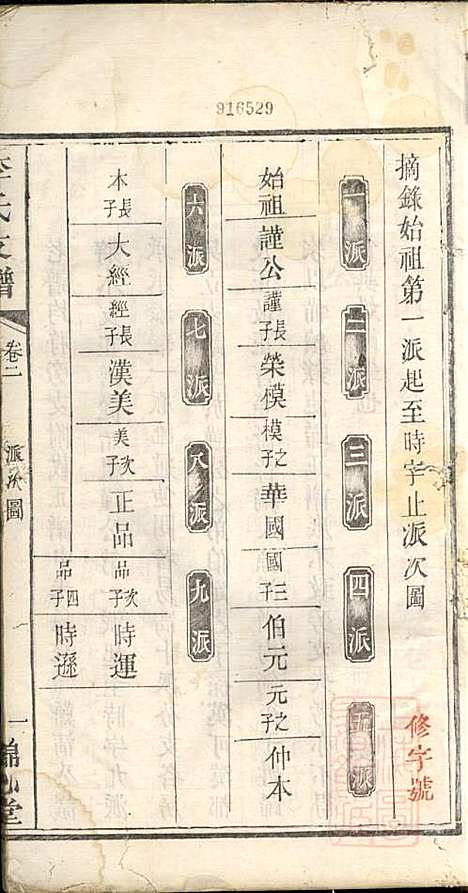 916529
摘錄始祖第一派起至時字止派次圖
修字號
一派 二派 三派 四派 五派
始祖 謹公 謹長子 榮模 模之子 華國 國三子 伯元 元之子 仲本
六派 七派 八派 九派
木長子 大經 經長子 漢美 美次子 正品 品次子 時運
品四子 時遜
氏支譜 卷二 派次圖 一 錦心堂